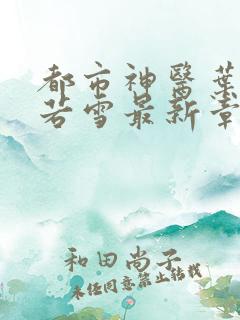 都市神醫葉
若雪最新章
和田尚子
未经同意禁止转载